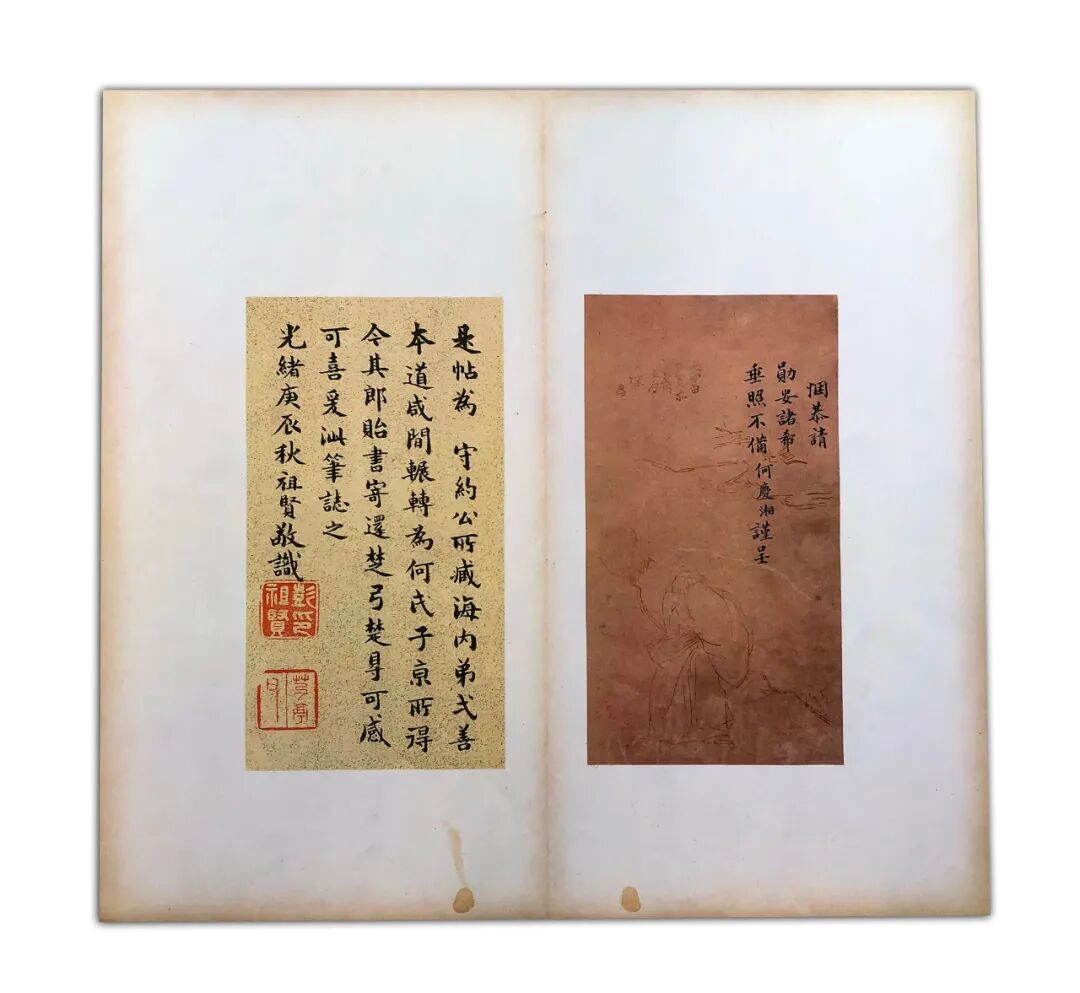 悃恭請
勛安諸希
垂照不備何慶湘謹呈
是帖為 守約公所藏海内弟弍善
本道咸間輾轉為何氏子京所得
今其郎貽書寄還楚弓楚得可感
可喜爰泚筆誌之
光緒庚辰秋祖賢敬識
彭祖賢印
芍亭